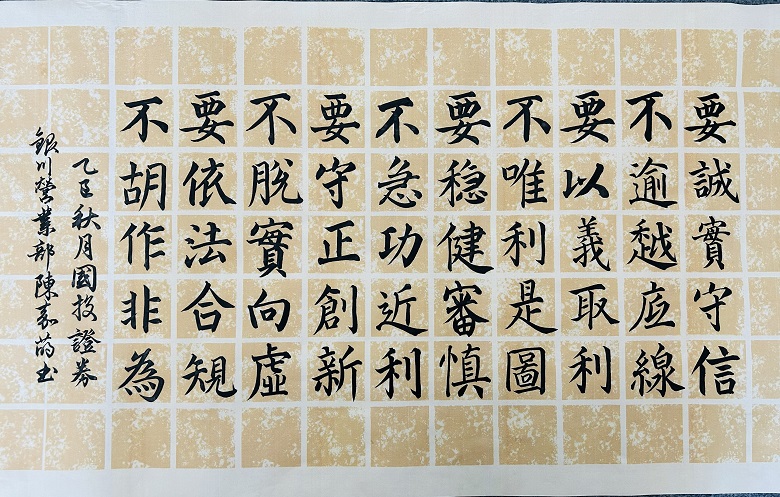 要誠實守信
不逾越底線
要以義取利
不唯利是圖
要穩健審慎
不急功近利
要守正創新
不脫實向虛
要依法合規
不胡作非為
乙巳秋月國投證券
銀川營業部陳嘉蒔书